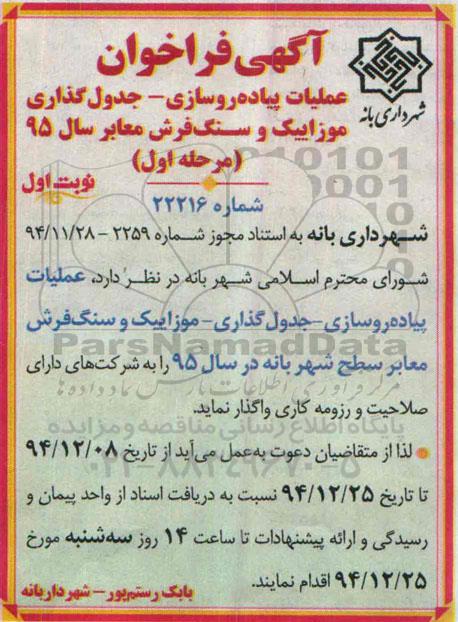 آگهی فراخوان
عملیات پیاده‌روسازی - جدول‌گذاری
موزاییک و سنگ‌فرش معابر سال ۹۵
(مرحله اول)
شهرداری بانه
نوبت اول
شماره ۲۲۲۱۶
شهرداری بانه به استناد مجوز شماره ۲۲۵۹ - ۹۴/۱۱/۲۸
شورای محترم اسلامی شهر بانه در نظر دارد، عملیات
پیاده‌روسازی-جدول‌گذاری-موزاییک و سنگ‌فرش
معابر سطح شهر بانه در سال ۹۵ را به شرکت‌های دارای
صلاحیت و رزومه کاری واگذار نماید.
لذا از متقاضیان دعوت به‌عمل می‌آید از تاریخ ۹۴/۱۲/۰۸
تا تاریخ ۹۴/۱۲/۲۵ نسبت به دریافت اسناد از واحد پیمان و
رسیدگی و ارائه پیشنهادات تا ساعت ۱۴ روز سه‌شنبه مورخ
۹۴/۱۲/۲۵ اقدام نمایند.
بابک رستم‌پور - شهردار بانه
ParsNamadData
مرکز فرآوری اطلاعات پارس نماد داده‌ها
پایگاه اطلاع رسانی مناقصه و مزایده
۰۲۱-۸۸۳۴۹۶۷۰-۵